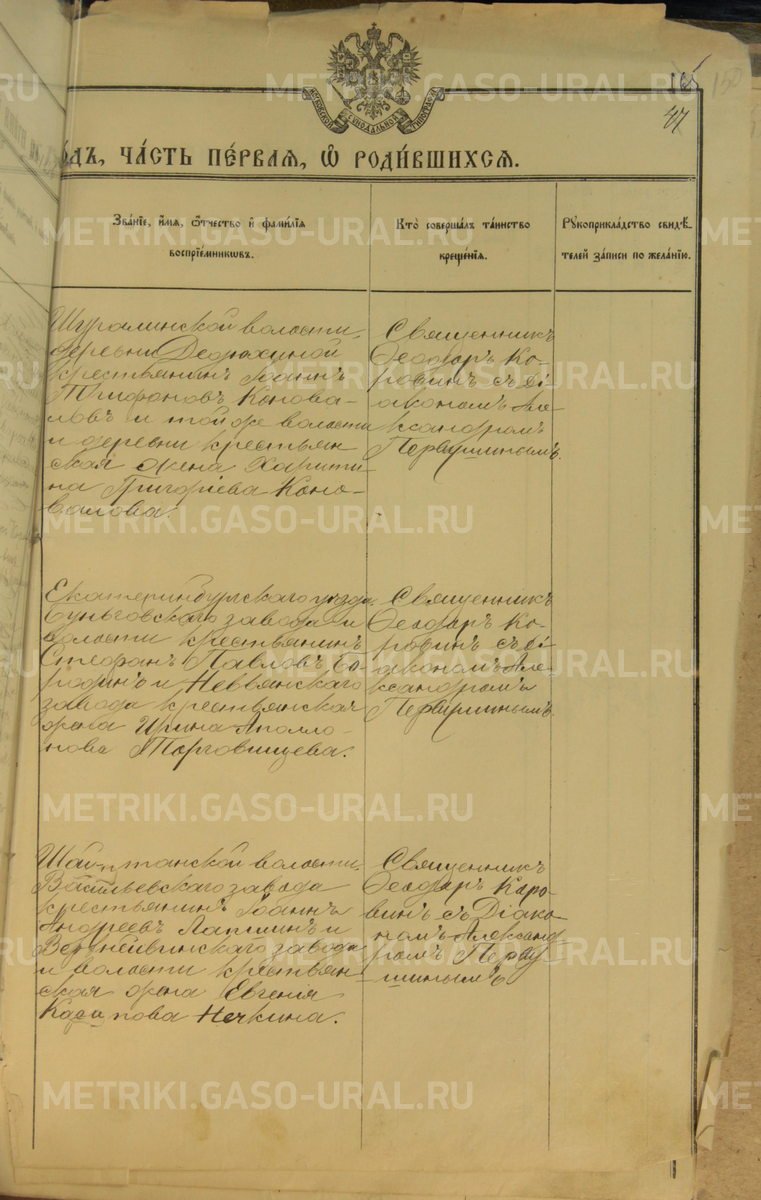 150
47
МОСКОВСКОЙ СѴНОДАЛЬНОЙ ТИПОГРАФІИ
ОДЪ, ЧА́СТЬ ПЕ́РВАЯ, Ѡ҆ РОДИ́ВШИХСЯ.
Зва́нїе, и҆́мя, ѻ҆́тчество и҆ фами́лїя
воспрїе́мникѡвъ.
Кто̀ соверша́лъ та́инство
креще́нїя.
Рꙋкоприкла́дство свидѣ́-
телей за́писи по жела́нїю.
Шуралинской волости,
деревни
крестьянинъ Іоаннъ
Трифоновъ Конова-
ловъ и той же волости
и деревни крестьян-
ская жена Харити-
на Григоріева Коно-
валова.
Священникъ
Ѳеодоръ Ко-
ровинъ съ ді-
акономъ Але-
ксандромъ
Первушинымъ.
Екатеринбургскаго уѣзда
Быньговскаго завода и
волости крестьянинъ
Стефанъ Павловъ Бо-
родинъ и Невьянскаго
завода крестьянская
жена Ирина Аполло-
нова Торговищева.
Священникъ
Ѳеодоръ Ко-
ровинъ съ ді-
акономъ Але-
ксандромъ
Первушинымъ
Шайтанской волости,
Васильевскаго завода
крестьянинъ Іоаннъ
Андреевъ Лапшинъ и
Верхнейвинскаго завода
и волости крестьян-
ская жена Евгенія
Карпова Нечкина.
Священникъ
Ѳеодоръ Коро-
винъ съ Діако-
номъ Александ-
ромъ Перву-
шинымъ
METRIKI.GASO-URAL.RU